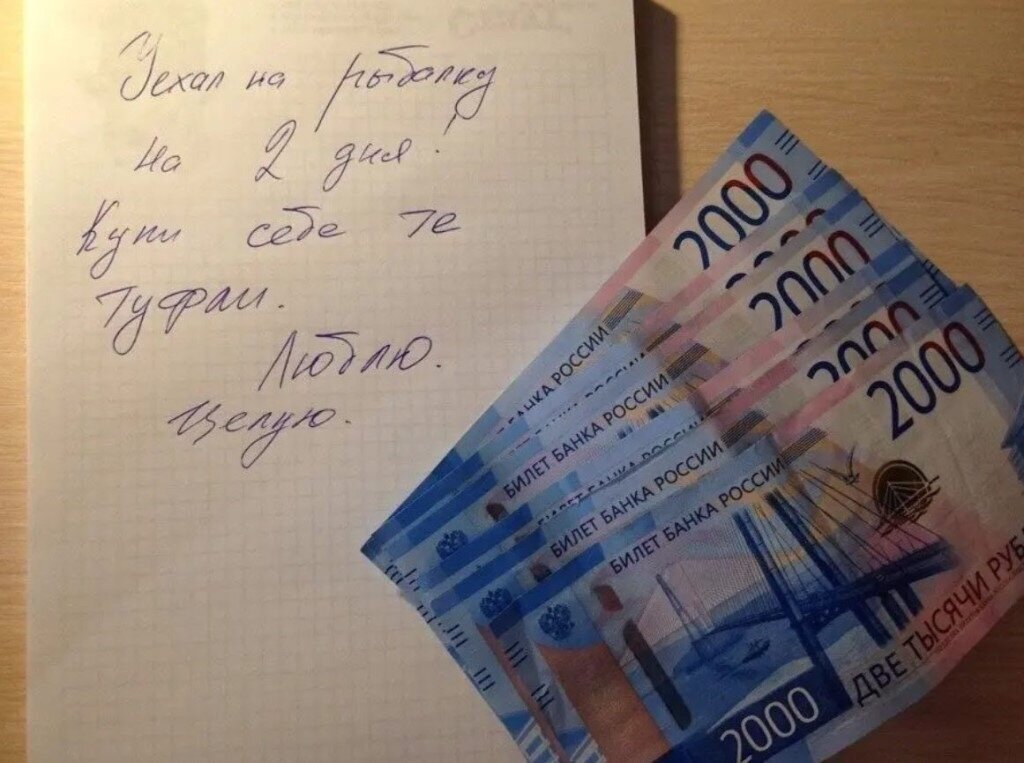 Уехал на рыбалку
на 2 дня!
Купи себе те
туфли.
Люблю.
Целую.
2000
2000
2000
2000
БАНКА РОССИИ
БИЛЕТ БАНКА РОССИИ
БИЛЕТ БАНКА РОССИИ
БИЛЕТ БАНКА РОССИИ
ДВЕ ТЫСЯЧИ РУБ
2000